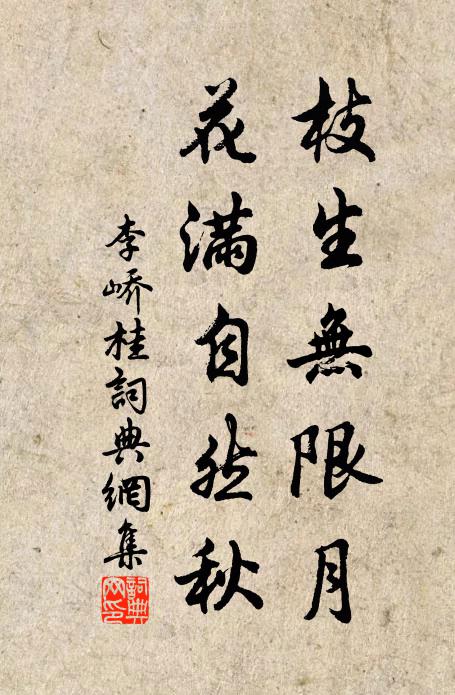 枝生無限月
花滿自然秋
李嶠桂詞典網集
詞典网印